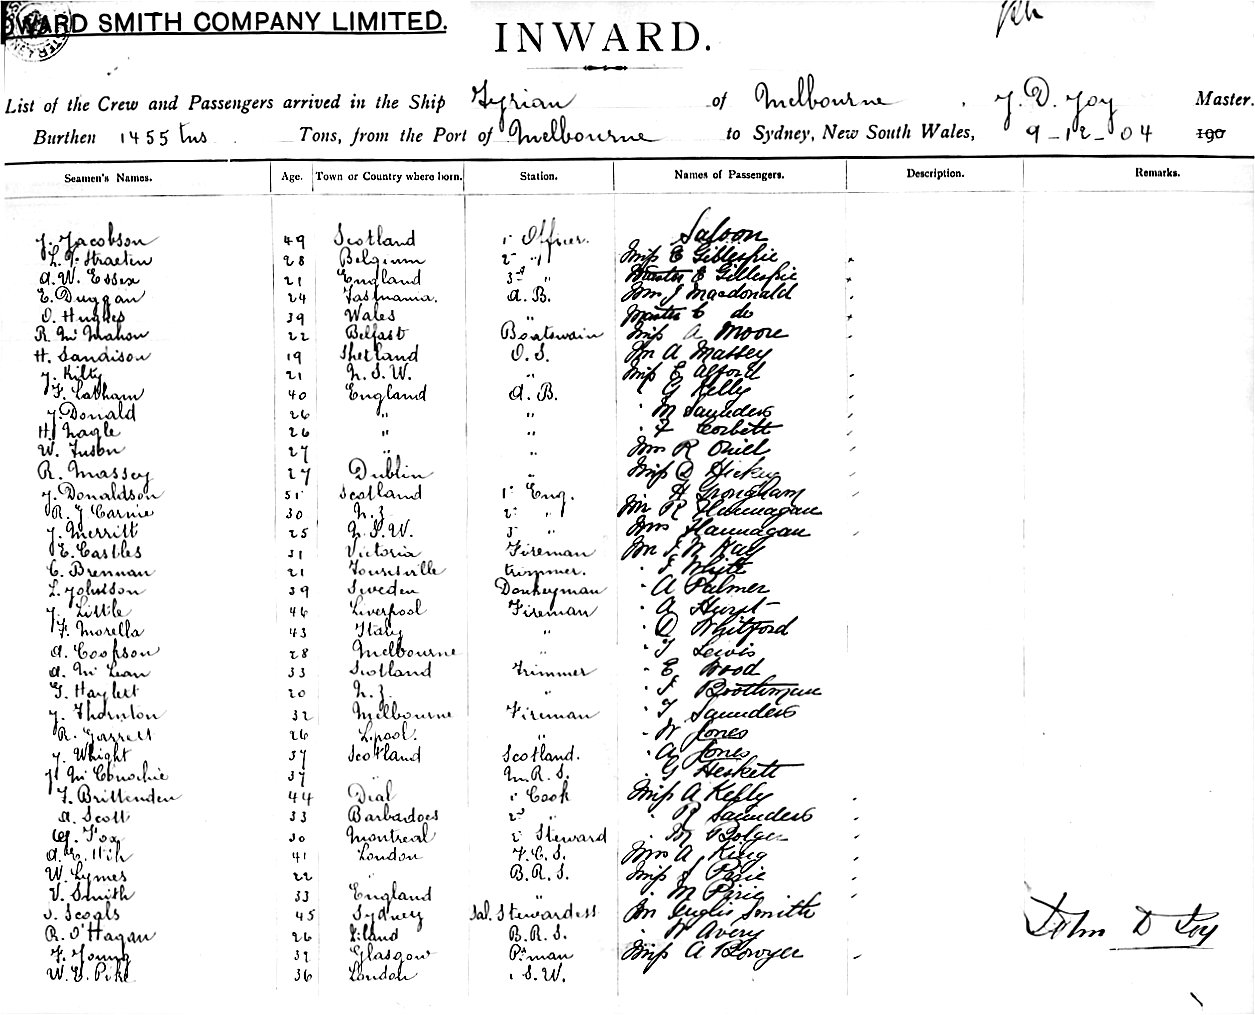 WARD SMITH COMPANY LIMITED.
INWARD.
List of the Crew and Passengers arrived in the Ship Tyrian of Melbourne, J. D. Joy Master.
Burthen 1455 tns Tons, from the Port of Melbourne to Sydney, New South Wales, 9-12-04 190
Seamen's Names. Age. Town or Country where born. Station. Names of Passengers. Description. Remarks.
Saloon
J. Jacobson 49 Scotland 1st Officer. Miss E Gillespie
28 Belgium 2nd " Master E Gillespie
A. W. Essex 21 England 3rd " Mrs J Macdonald
E. Duggan 24 Tasmania. A. B. Master C do
O. Hughes 39 Wales " Miss A Moore
R. McMahon 22 Belfast Boatswain Mr A Massey
H. Sandison 19 Shetland O. S. Miss E Alford
J. Kilty 21 N. S. W. " " G Kelly
F. Latham 40 England A. B. " M Saunders
J. Donald 26 " " " F Corbett
H. Nagle 26 " " Mrs R Quill
W. Tuson 27 " " Miss D Hickey
R. Massey 27 Dublin " H
J. Donaldson 51 Scotland 1st Eng. Mr R Flannagan
R. J Carnie 30 N. Z. 2nd " Mrs Flannagan
J. Merritt 25 N. S. W. 3rd " Mr J. M Hay
E. Castles 31 Victoria Fireman " F Whitt
C. Brennan 21 Townsville trimmer. " A Palmer
L. Johnson 39 Sweden Donkeyman " A Hurst
J. Little 46 Liverpool Fireman " D Whitford
F. Morella 43 Italy " " T Lewis
A. Cookson 28 Melbourne " " E Wood
A. McLean 33 Scotland Trimmer " F Boothman
20 N. Z. " " T Saunders
J. Thornton 32 Melbourne Fireman " W Jones
R. Garrett 26 L.pool. " " A Jones
J. Whight 37 Scotland Scotland. " G Heskett
J. McConochie 37 " M. R. S. Miss A Kelly
F. Brittenden 44 Deal 1st Cook " R Saunders
A. Scott 33 Barbadoes 2nd " " M Bolger
Fox 30 Montreal 2 Steward Mrs A King
41 London F. C. S. Miss J Pirie
W. Lymes 22 " B. R. S. " M Pirie
V. Smith 33 England " Mr Inglis Smith
45 Sydney Sal. Stewardess " W Avery
R. O'Hagan 26 B. R. S. Miss A Bowyer
F. Young 32 Glasgow P.man
W. E. Pike 36 London " S. W.
John D Joy